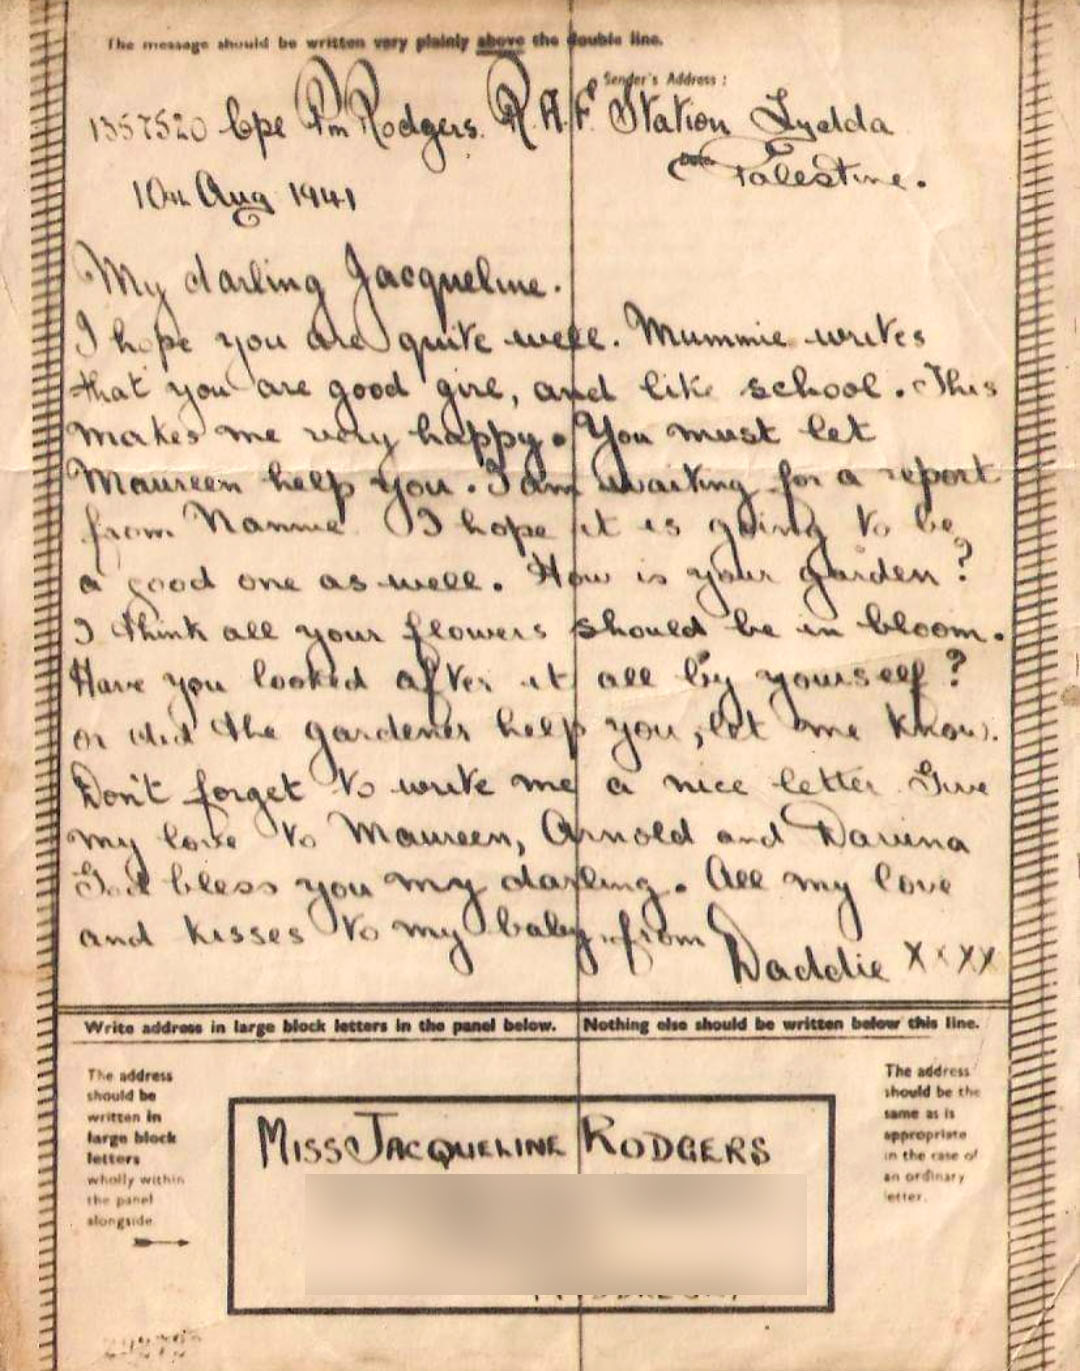 The message should be written very plainly above the double line.
Sender's Address :
1357520 Cpl Pm Rodgers. R.A.F. Station Lydda
Palestine.
10th Aug 1941
My darling Jacqueline.
I hope you are quite well. Mummie writes
that you are good girl, and like school. This
makes me very happy. You must let
Maureen help you. I am waiting for a report
from Nannie. I hope it is going to be
a good one as well. How is your garden?
I think all your flowers should be in bloom.
Have you looked after it all by yourself?
or did the gardener help you, let me know.
Don't forget to write me a nice letter Give
my love to Maureen, Arnold and Davina
God bless you my darling. All my love
and kisses to my baby. from
Daddie XXXX
Write address in large block letters in the panel below. Nothing else should be written below this line.
The address
should be
written in
large block
letters
wholly within
the panel
alongside
MISS JACQUELINE RODGERS
The address
should be the
same as is
appropriate
in the case of
an ordinary
letter.